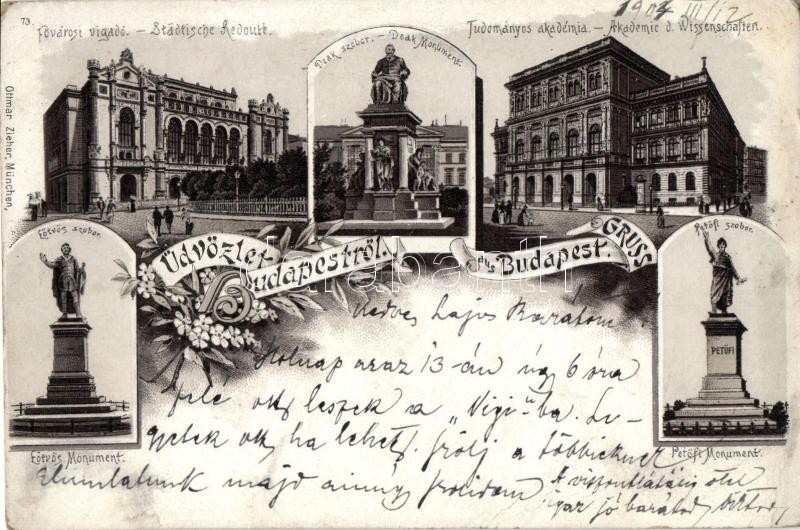 73.
1907 III/12
Fővárosi vigadó. — Städtische Redoute.
Deák szobor. — Deák Monument.
Tudományos akadémia. — Akademie d. Wissenschaften.
Ottmar Zieher, München.
Eötvös szobor.
Petőfi szobor.
Üdvözlet Budapestről.
Gruss aus Budapest.
PETŐFI
darabanth
Kedves Lajos Barátom
Holnap azaz 13-án úgy 6 óra
felé ott leszek a "Vigi"-ba. Le-
gyetek ott, ha lehet. Szólj a többieknek
majd
A viszontlátásig ölel
igaz jó barátod
Eötvös Monument.
Petőfi Monument.